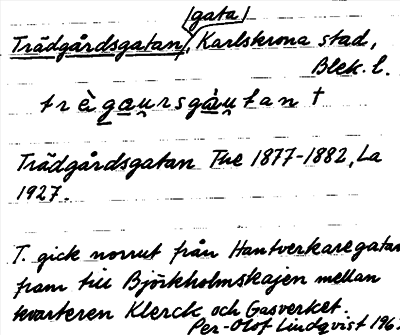 /gata/
Trädgårdsgatan, Karlskrona stad,
Blek. l.
trègaursgàutan †
Trädgårdsgatan The 1877-1882, La
1927.
T. gick norrut från Hantverkaregatan
fram till Björkholmskajen mellan
kvarteren Klerck och Gasverket.
Per-Olof Lindqvist 196